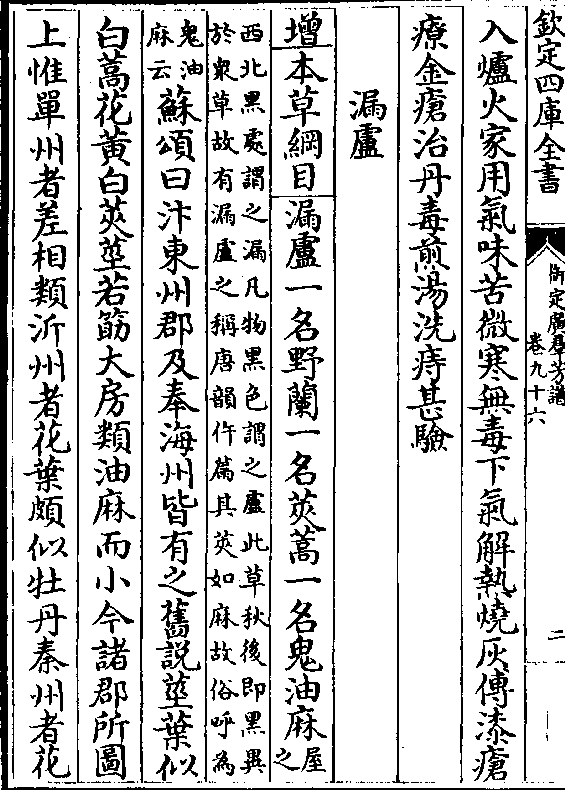 欽定四庫全書
御定廣羣芳譜
卷九十六
二
入爐火家用氣味苦微寒無毒下氣解熱燒灰傅漆瘡
療金瘡治丹毒煎湯洗痔甚驗
漏盧
增本草綱目漏盧一名野蘭一名莢蒿一名鬼油麻屋之
西北黑處謂之漏凡物黑色謂之盧此草秋後即黑異
於衆草故有漏盧之稱唐韻作䕡其莢如麻故俗呼為
鬼油麻云蘇頌曰汴東州郡及秦海州皆有之舊說莖葉似
白蒿花黃白莢莖若筯大房類油麻而小今諸郡所圖
上惟單州者差相類沂州者花葉頗似牡丹秦州者花